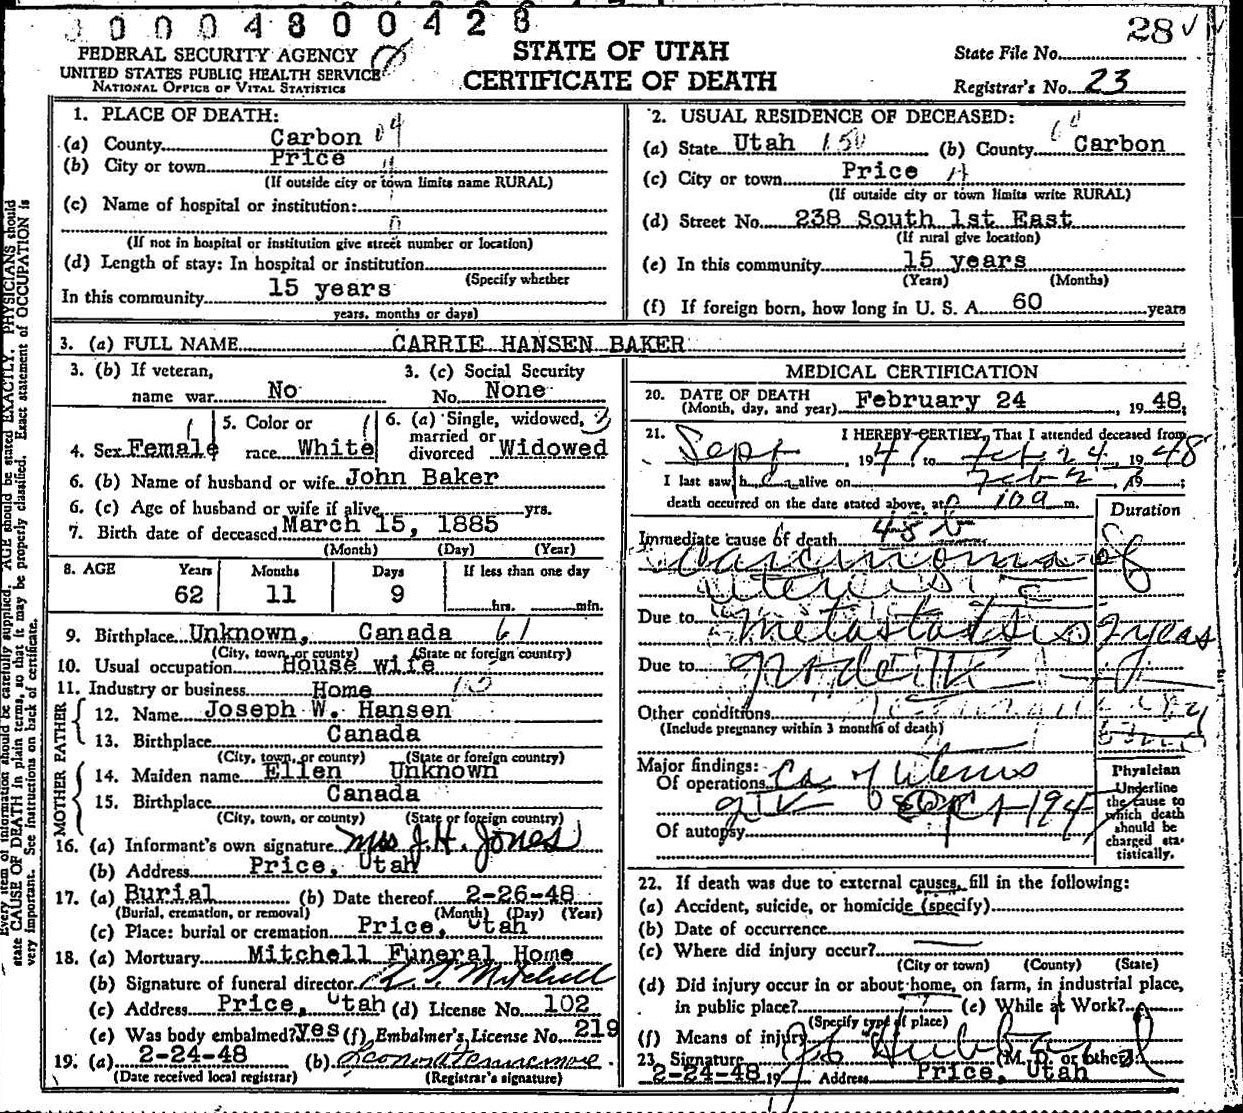 0004800428
28
FEDERAL SECURITY AGENCY
UNITED STATES PUBLIC HEALTH SERVICE
NATIONAL OFFICE OF VITAL STATISTICS
STATE OF UTAH
CERTIFICATE OF DEATH
State File No.
Registrar's No. 23
1. PLACE OF DEATH:
(a) County Carbon 04
(b) City or town Price
(If outside city or town limits name RURAL)
(c) Name of hospital or institution:
(If not in hospital or institution give street number or location)
(d) Length of stay: In hospital or institution
(Specify whether
In this community 15 years
years, months or days)
2. USUAL RESIDENCE OF DECEASED:
(a) State Utah 150 (b) County Carbon
(c) City or town Price
(If outside city or town limits write RURAL)
(d) Street No. 238 South 1st East
(If rural give location)
(e) In this community 15 years
(Years) (Months)
(f) If foreign born, how long in U. S. A. 60 years
3. (a) FULL NAME CARRIE HANSEN BAKER
3. (b) If veteran,
name war No
3. (c) Social Security
No. None
4. Sex Female
5. Color or
race White
6. (a) Single, widowed,
married or
divorced Widowed
6. (b) Name of husband or wife John Baker
6. (c) Age of husband or wife if alive yrs.
7. Birth date of deceased March 15, 1885
(Month) (Day) (Year)
8. AGE Years Months Days If less than one day
62 11 9 hrs. min.
9. Birthplace Unknown, Canada 61
(City, town, or county) (State or foreign country)
10. Usual occupation House wife
11. Industry or business Home
FATHER
12. Name Joseph W. Hansen
13. Birthplace Canada
(City, town, or county) (State or foreign country)
MOTHER
14. Maiden name Ellen Unknown
15. Birthplace Canada
(City, town, or county) (State or foreign country)
16. (a) Informant's own signature Mrs J. H. Jones
(b) Address Price, Utah
17. (a) Burial (b) Date thereof 2-26-48
(Burial, cremation, or removal) (Month) (Day) (Year)
(c) Place: burial or cremation Price, Utah
18. (a) Mortuary Mitchell Funeral Home
(b) Signature of funeral director Mitchell
(c) Address Price, Utah (d) License No. 102
(e) Was body embalmed? Yes (f) Embalmer's License No. 219
19. (a) 2-24-48 (b)
(Date received local registrar) (Registrar's signature)
MEDICAL CERTIFICATION
20. DATE OF DEATH
(Month, day, and year) February 24, 1948;
21. I HEREBY CERTIFY, That I attended deceased from
Sept, 1947 to Feb 24, 1948
I last saw h alive on Feb 2, 19 ;
death occurred on the date stated above, at 109 m.
Duration
48 b
Immediate cause of death
Carcinoma of
uterus
Due to metastatsis 2 years
Due to
Other conditions
(Include pregnancy within 3 months of death)
Major findings:
Of operations Ca of Uterus
Sept 1947
Of autopsy
Physician
Underline
the cause to
which death
should be
charged sta-
tistically.
22. If death was due to external causes, fill in the following:
(a) Accident, suicide, or homicide (specify)
(b) Date of occurrence
(c) Where did injury occur?
(City or town) (County) (State)
(d) Did injury occur in or about home, on farm, in industrial place,
in public place? (e) While at Work?
(Specify type of place)
(f) Means of injury
23. Signature Hubbard (M. D. or other)
2-24-48 19 Address Price, Utah
Every item of information should be carefully supplied. AGE should be stated EXACTLY. PHYSICIANS should
state CAUSE OF DEATH in plain terms, so that it may be properly classified. Exact statement of OCCUPATION is
very important. See instructions on back of certificate.